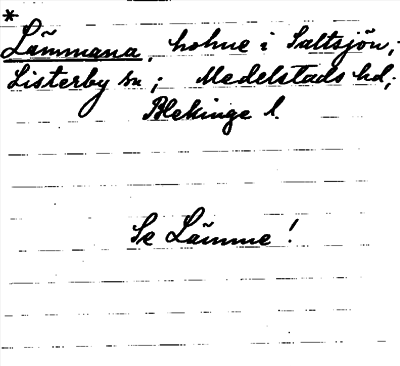 *
Lämmana, holme i Saltsjön,
Listerby sn; Medelstads hd,
Blekinge l.
Se Lämme!